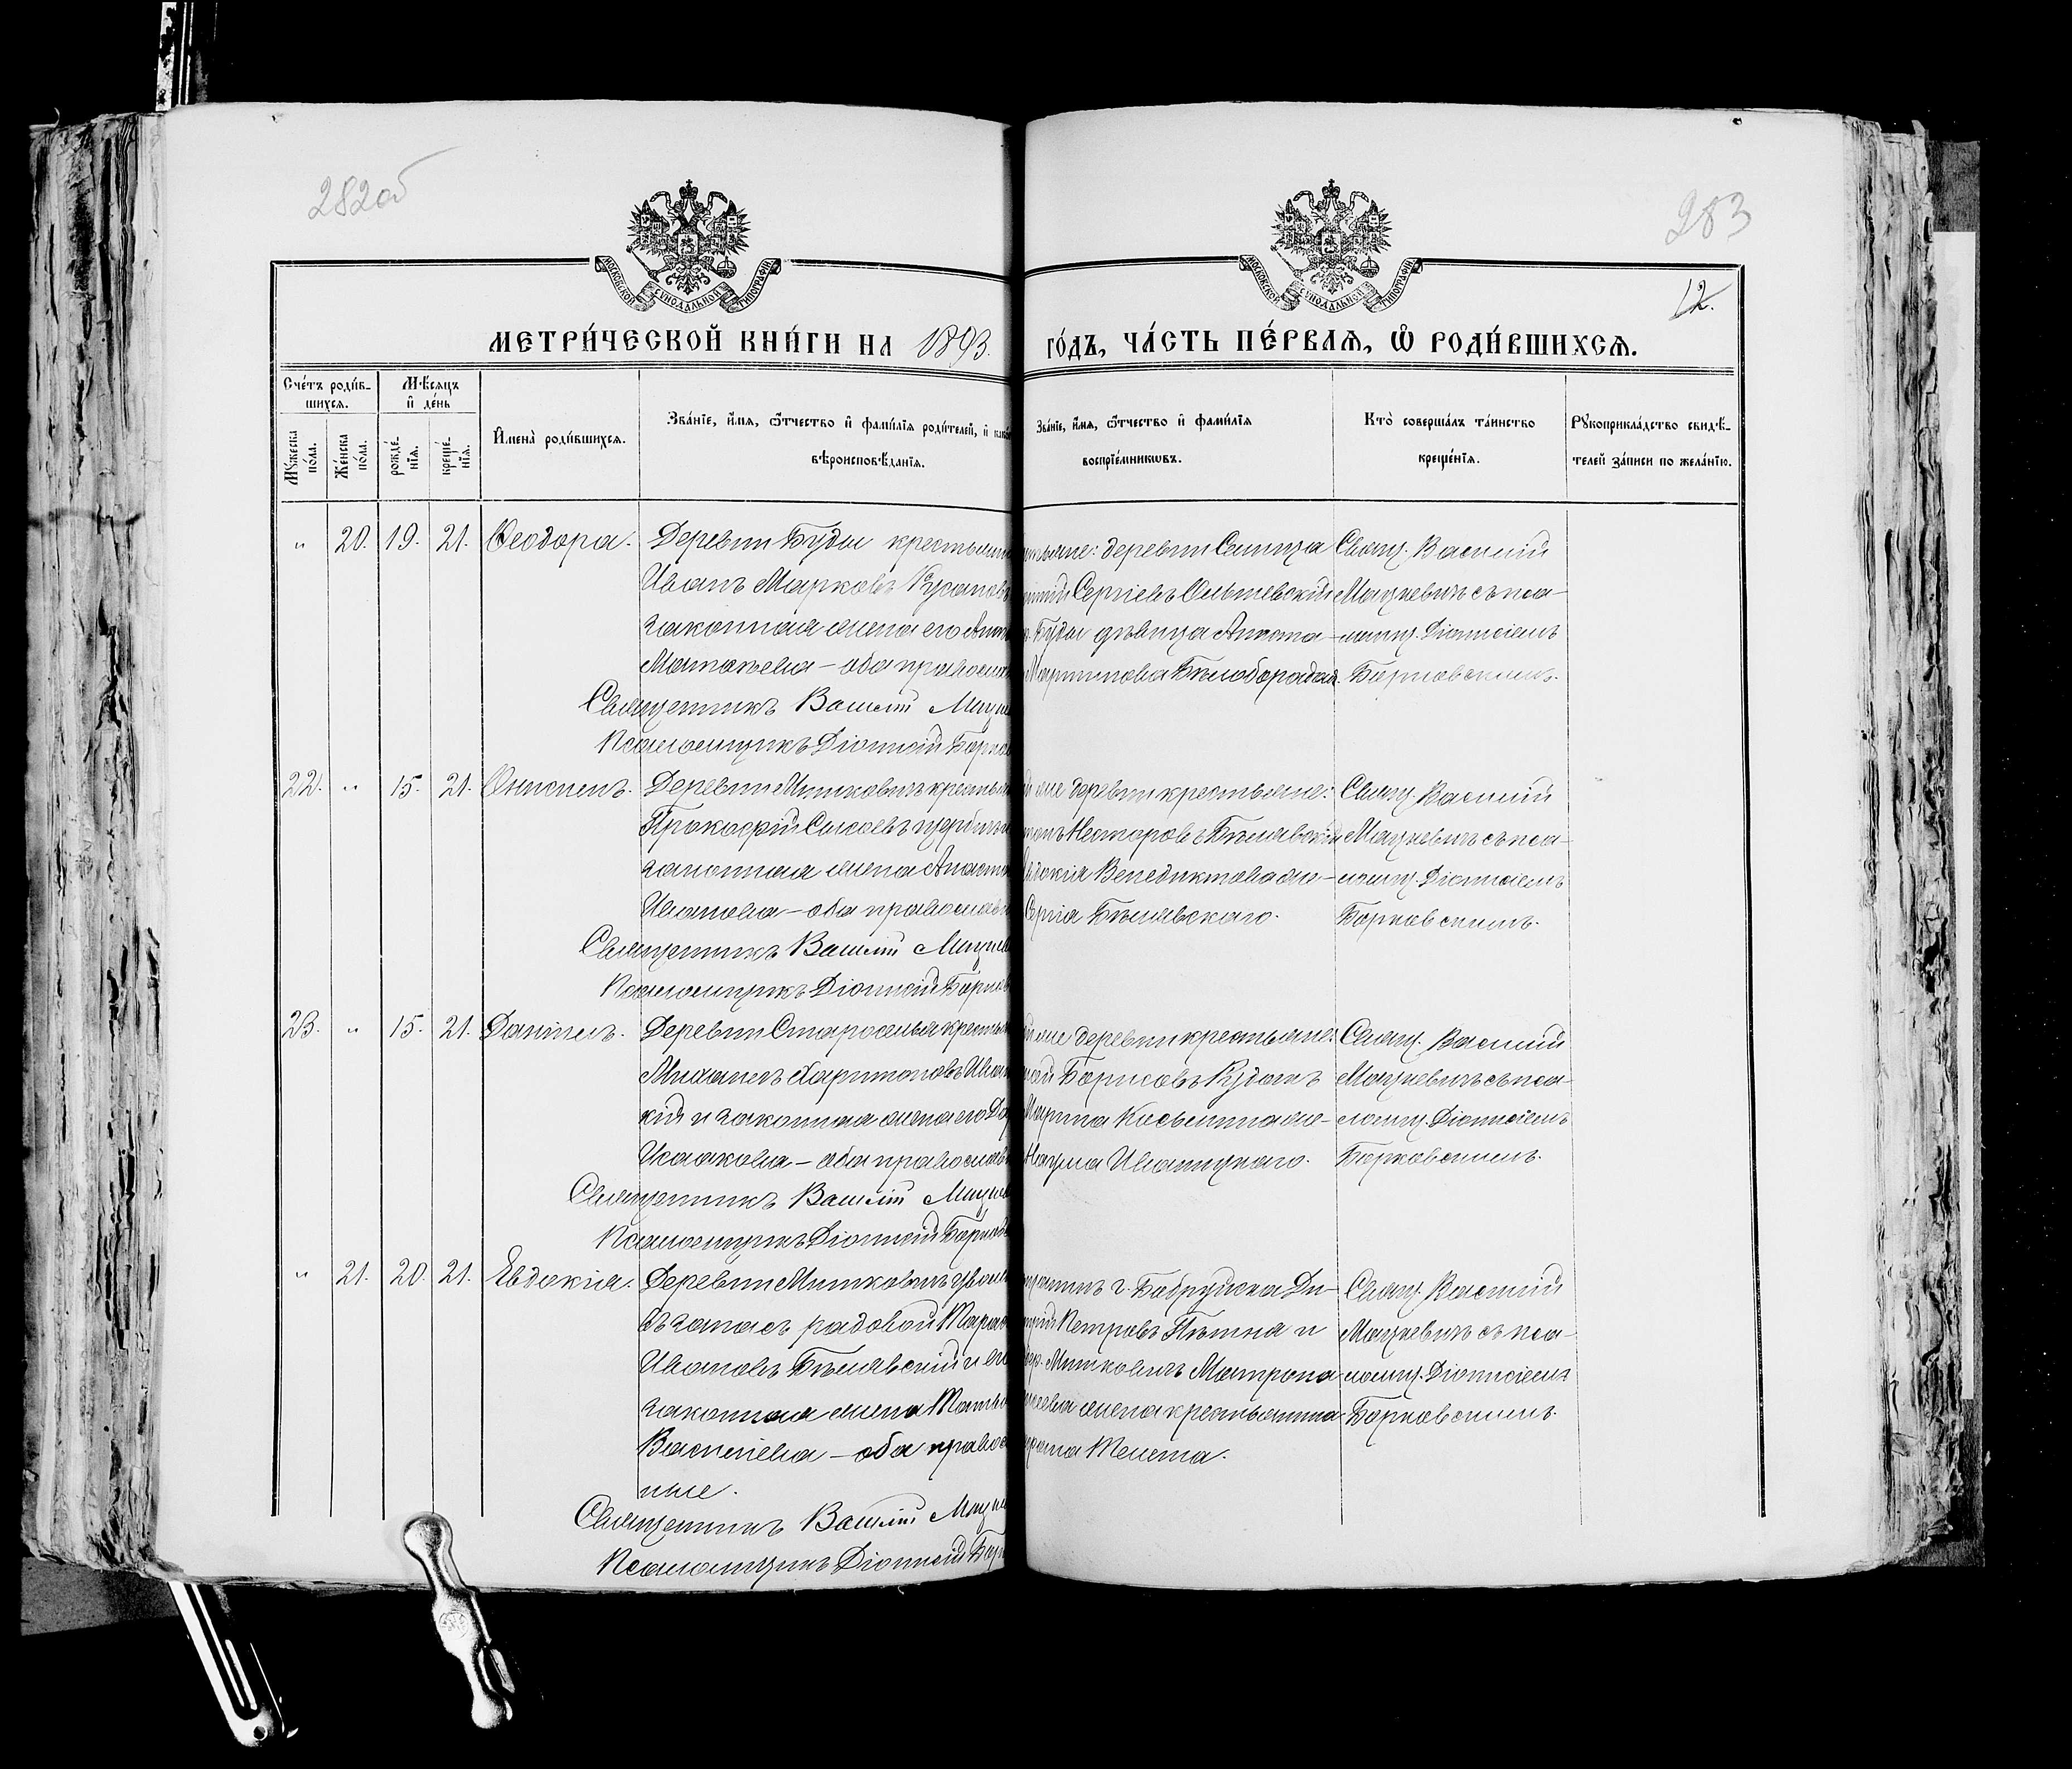 282об
283
12.
МОСКОВСКОЙ СѴНОДАЛЬНОЙ ТИПОГРАФИИ
МОСКОВСКОЙ СѴНОДАЛЬНОЙ ТИПОГРАФИИ
МЕТРИ́ЧЕСКОЙ КНИ́ГИ НА 1893. ГО́ДЪ, ЧА́СТЬ ПЕ́РВАѦ, Ѡ҆ РОДИ́ВШИХСѦ.
Сче́тъ роди́в-
шихсѧ.
Мꙋ́жеска по́ла.
Же́нска по́ла.
Мѣ́сѧцъ
и҆ де́нь
рожде́-нїѧ.
креще́-нїѧ.
И҆мена̀ роди́вшихсѧ.
Зва́нїе, и҆́мѧ, ѻ҆́тчество и҆ фамі́лїѧ роди́телей, и҆ како
вѣроисповѣ́данїѧ.
Зва́нїе, и҆́мѧ, ѻ҆́тчество и҆ фамі́лїѧ
воспрїе́мникѡвъ.
Кто̀ соверша́лъ та́инство
креще́нїѧ.
Рꙋкоприкла́дство свидѣ́-
телей за́писи по жела́нїю.
" 20. 19. 21. Ѳеодора.
Деревни Буды крестьянин
Иванъ Марковъ
законная жена его
Матѳеева – оба православн
Священникъ Василій Мацке
Псаломщикъ Діонисій Борко
деревни
Сергіевъ Ольшевскій
Буды дѣвица
Мартинова Бѣлобородая.
Свящ. Василій
Мацкевичъ съ пса-
ломщ. Діонисіемъ
Борковскимъ.
22. " 15. 21. Онисимъ.
Деревни Митковичъ крестьян
Прокофій Сысоевъ
законная жена Анаста
Иванова – оба православн
Священникъ Василій Мацкев
Псаломщикъ Діонисій Борков
же деревни крестьяне:
Несторовъ Бѣлявскій
Венедиктова же-
Сергія Бѣлявскаго.
Свящ. Василій
Мацкевичъ съ пса-
ломщ. Діонисіемъ
Борковскимъ.
23. " 15. 21. Даніилъ.
Деревни Староселья крестьян
Михаилъ Харитоновъ Иван
кій и законная жена его
Исаакова – оба православн
Священникъ Василій Мацке
Псаломщикъ Діонисій Борков
же деревни крестьяне:
Борисовъ Кудинъ
Марина Касьянина же-
Наума Иваницкаго.
Свящ. Василій
Мацкевичъ съ пса-
ломщ. Діонисіемъ
Борковскимъ.
" 21. 20. 21. Евдокія.
Деревни Митковичъ
въ запасъ рядовой Тарас
Ивановъ Бѣлявскій и его
законная жена Татья
Василіева – оба правос
ные.
Священникъ Василій Мацке
Псаломщикъ Діонисій Борк
г. Бобруйска Ди-
Петровъ и
Митковичъ Матрона
жена крестьянина
Свящ. Василій
Мацкевичъ съ пса-
ломщ. Діонисіемъ
Борковскимъ.